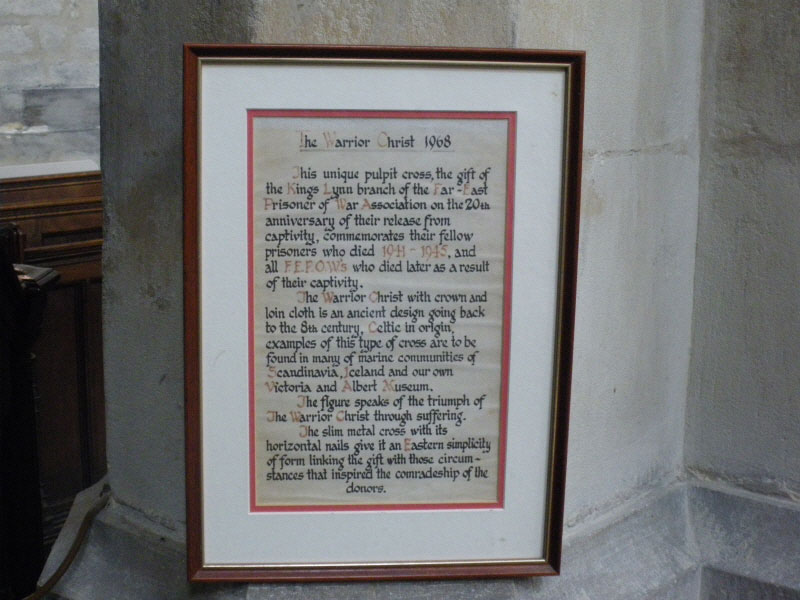 The Warrior Christ 1968
This unique pulpit cross, the gift of
the Kings Lynn branch of the Far-East
Prisoner of War Association on the 20th
anniversary of their release from
captivity, commemorates their fellow
prisoners who died 1941 - 1945, and
all F.E.P.O.W's who died later as a result
of their captivity.
The Warrior Christ with crown and
loin cloth is an ancient design going back
to the 8th century, Celtic in origin,
examples of this type of cross are to be
found in many of marine communities of
Scandinavia, Iceland and our own
Victoria and Albert Museum.
The figure speaks of the triumph of
The Warrior Christ through suffering.
The slim metal cross with its
horizontal nails give it an Eastern simplicity
of form linking the gift with those circum-
stances that inspired the comradeship of the
donors.